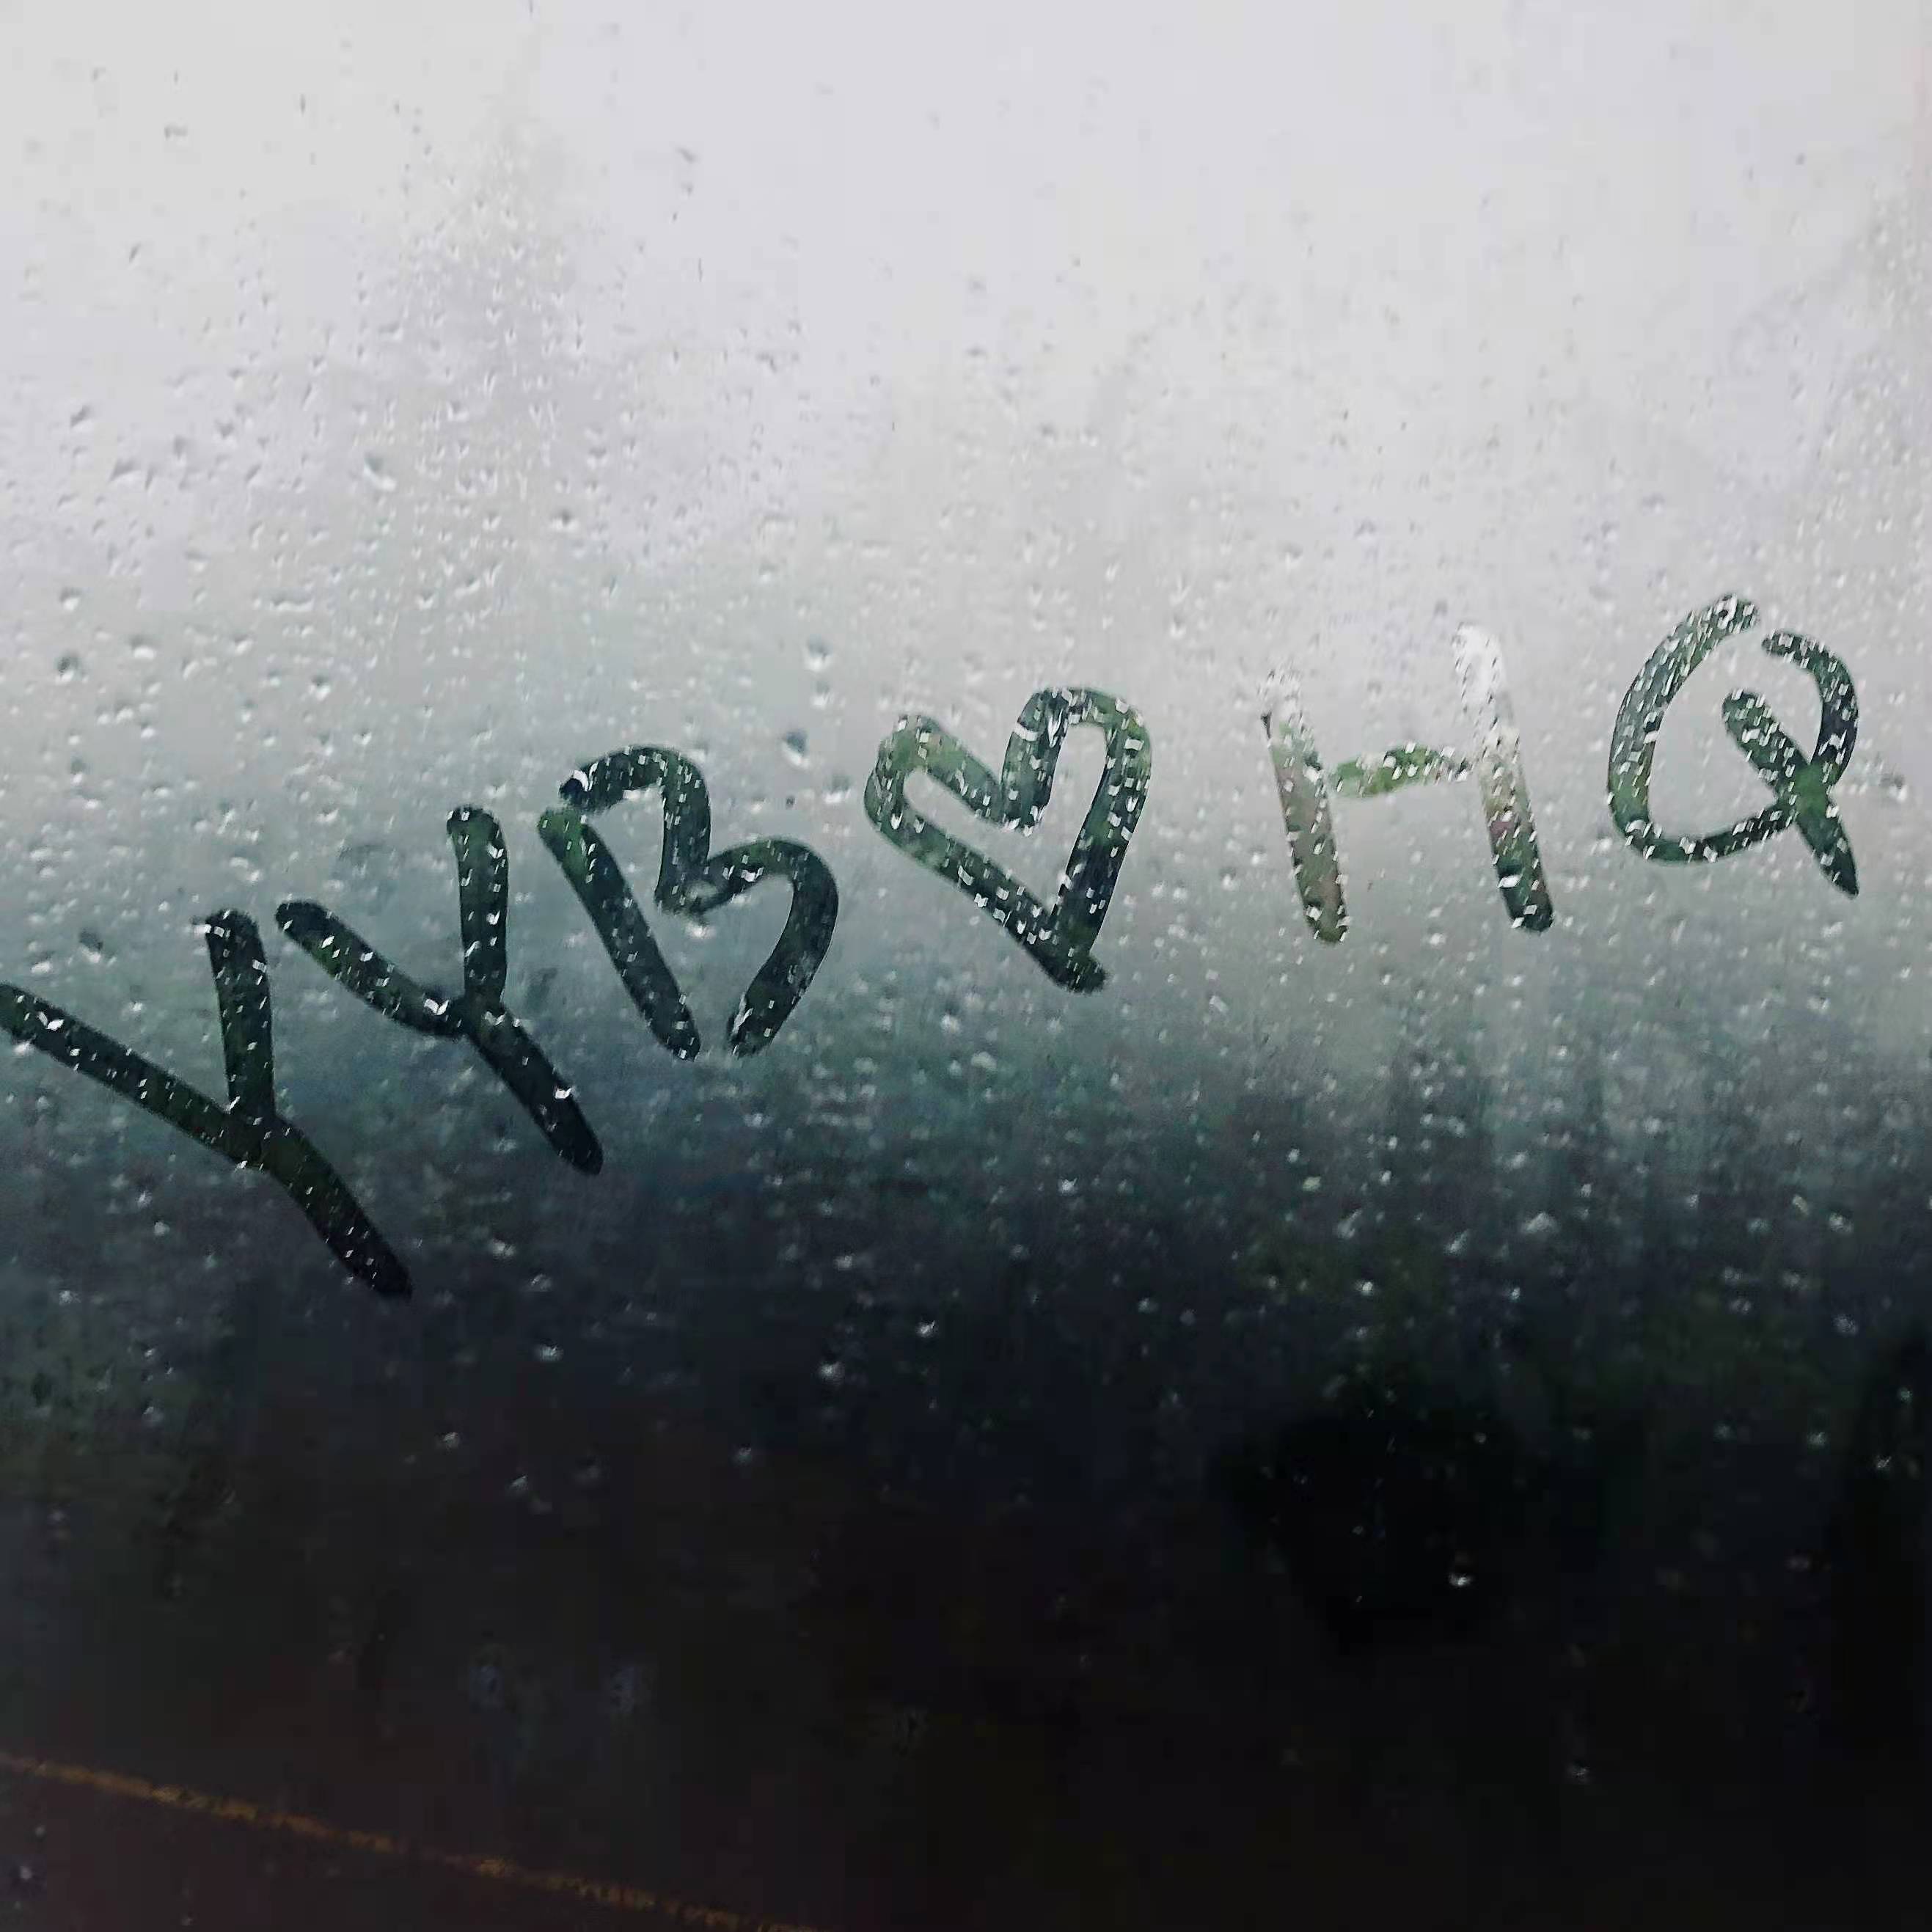 YYB♡HQ